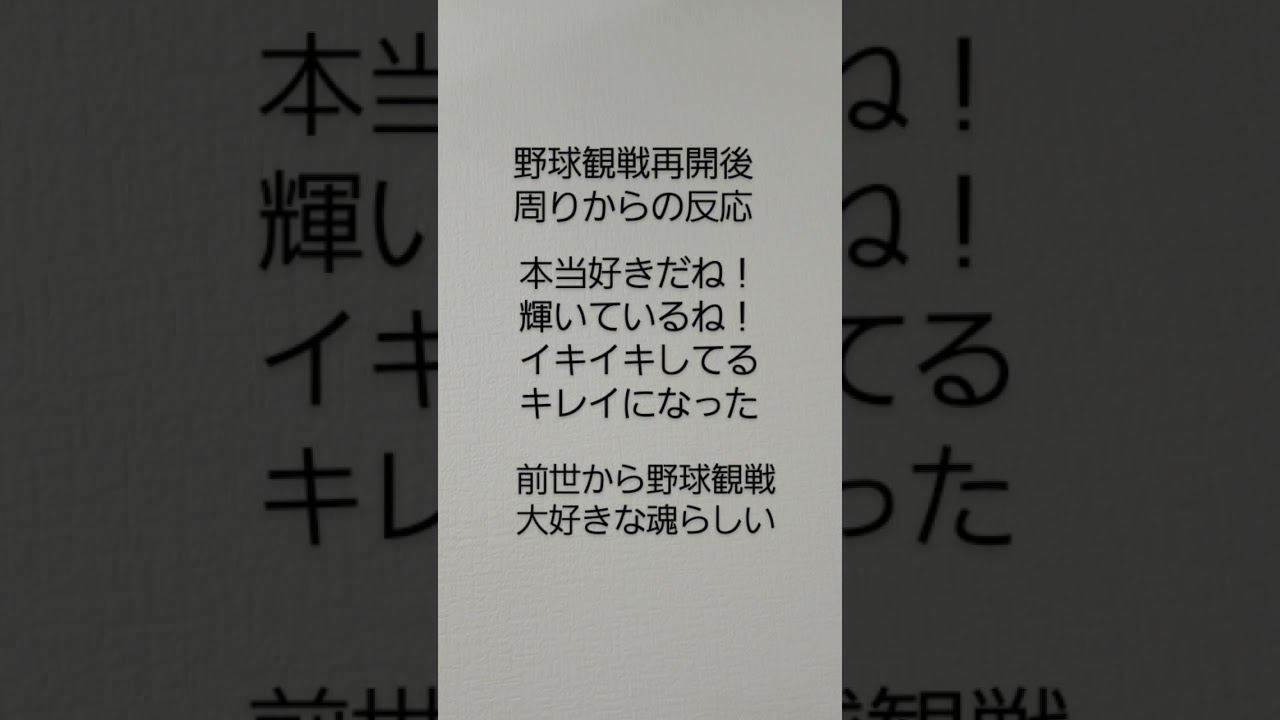 野球観戦再開後
周りからの反応
本当好きだね！
輝いているね！
イキイキしてる
キレイになった
前世から野球観戦
大好きな魂らしい